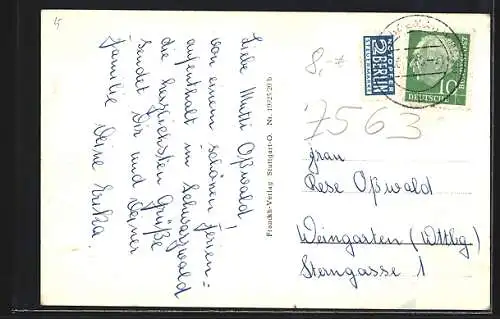 Liebe Mutti Oßwald!
von einem schönen Ferien=
aufenthalt im Schwarzwald
die herzlichsten Grüße
sendet Dir und Deiner
Familie Deine Erika.
Franckh-Verlag Stuttgart-O. Nr.
NOTOPFER
2 BERLIN
STEUERMARKE
DEUTSCHE
10
8,-
7563
Frau
Rese Oßwald
Weingarten (Wttbg)
Sterngasse 1